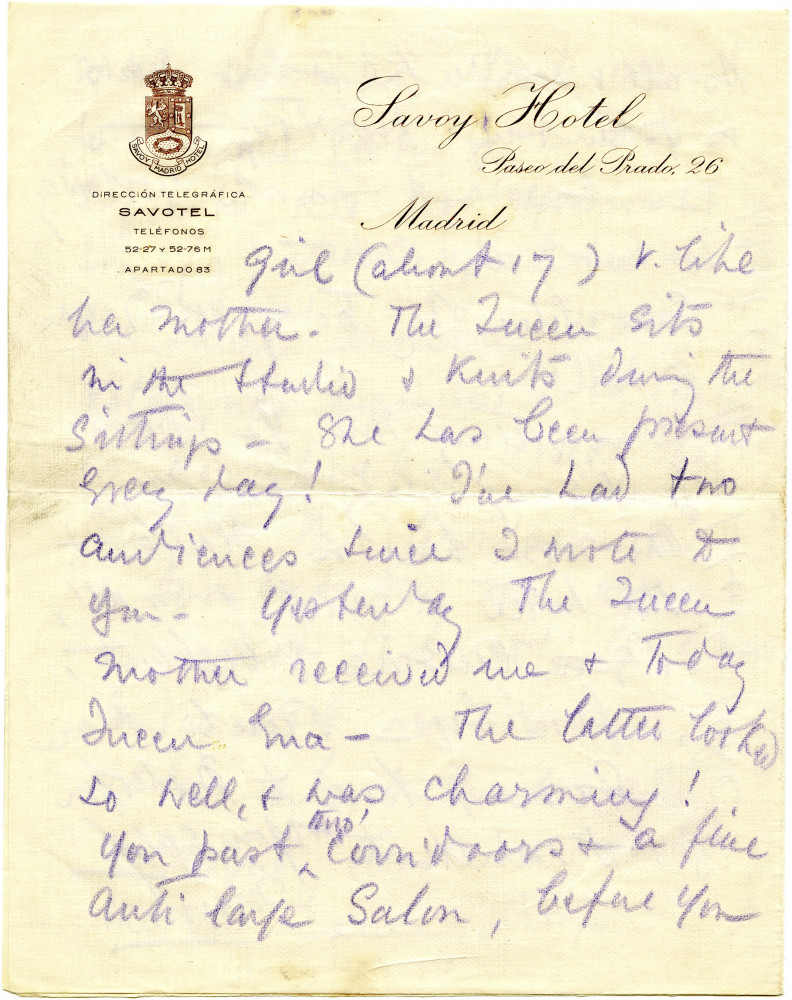 SAVOY MADRID HOTEL
DIRECCIÓN TELEGRÁFICA
SAVOTEL
TELÉFONOS
52-27 Y 52-76 M
APARTADO 83
Savoy Hotel
Paseo del Prado, 26
Madrid
Girl (about 17) V. like
her Mother. The Queen sits
in the Studio & Knits during the
Sittings - She has been present
every day! I've had two
audiences since I wrote to
you - Yesterday The Queen
Mother received me & Today
Queen Ena - The latter looked
so well, & was charming!
You past thro' Corridoors & a fine
Anti large Salon, before you